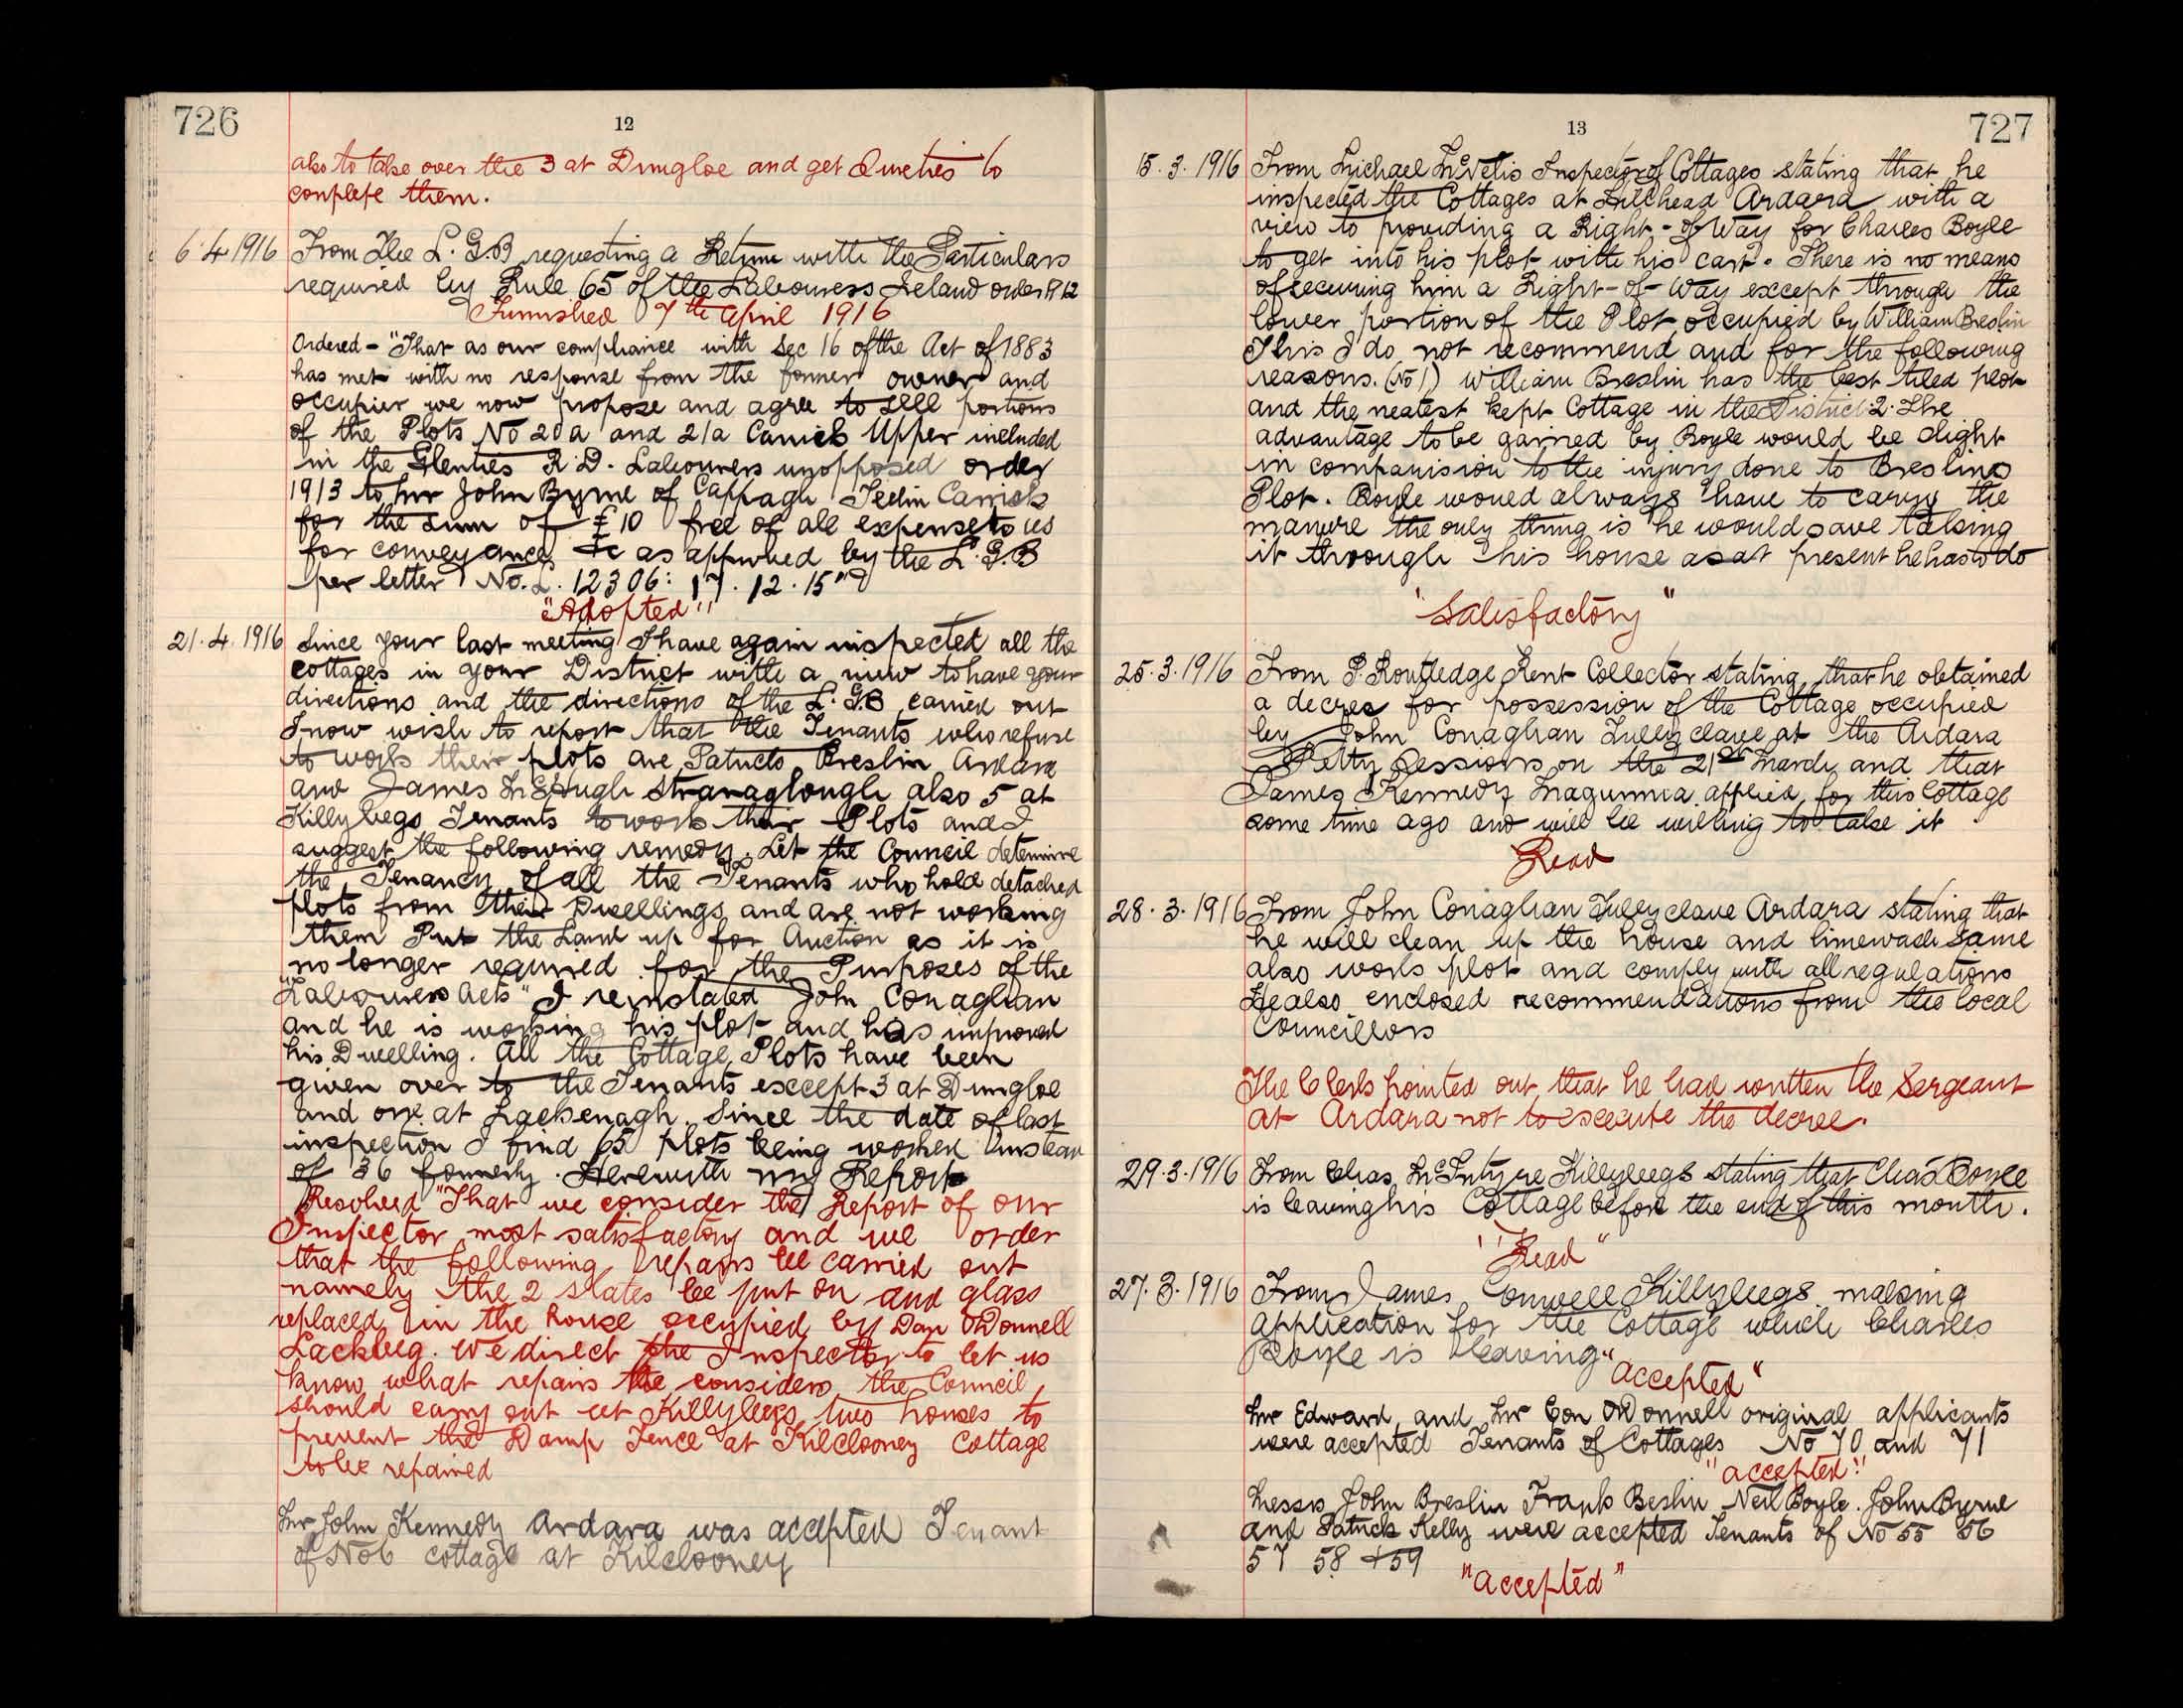 726
12
also to take over the 3 at Dungloe and get Sureties to
complete them.
6.4 1916 From The L. G.B requesting a Return with the Particulars
required by Rule 65 of the Labourers Ireland order 1912
Furnished 7th April 1916
Ordered - "That as our compliance with Sec 16 of the Act of 1883
has met with no response from the former owner and
occupier we now propose and agree to sell portions
of the Plots No 20a and 21a Carrick Upper included
in the Glenties R.D. Labourers unopposed order
1913 to Mr John Byrne of Cappagh Teelin Carrick
for the sum of £10 free of all expense to us
for conveyance &c as approved by the L. G.B
per letter No. L. 12306: 17. 12. 15"
"Adopted"
21. 4. 1916 Since your last meeting I have again inspected all the
cottages in your District with a view to have your
directions and the directions of the L. G.B carried out
I now wish to report that the Tenants who refuse
to work their plots are Patrick Breslin Ardara
and James McHugh Stranaglough also 5 at
Killybegs Tenants to work their Plots and I
suggest the following remedy. Let the Council determine
the Tenancy of all the Tenants who hold detached
plots from their Dwellings and are not working
them Put the Land up for Auction as it is
no longer required for the Purposes of the
"Labourers Acts" I reinstated John Conaghan
and he is working his plot and has improved
his Dwelling. All the Cottage Plots have been
given over to the Tenants except 3 at Dungloe
and one at Lackenagh. Since the date of last
inspection I find 65 plots being worked instead
of 36 formerly. Herewith my Report
Resolved "That we consider the Report of our
Inspector most satisfactory and we order
that the following repairs be carried out
namely the 2 slates be put on and glass
replaced in the house occupied by Dan O'Donnell
Lackbeg. We direct the Inspector to let us
know what repairs he considers the Council
should carry out at Killybegs two houses to
prevent the Damp Fence at Kilclooney Cottage
to be repaired
Mr John Kennedy Ardara was accepted Tenant
of No 6 cottage at Kilclooney
727
13
15. 3. 1916 From Michael McNelis Inspector of Cottages stating that he
inspected the Cottages at Hillhead Ardara with a
view to providing a Right-of-Way for Charles Boyle
to get into his plot with his cart. There is no means
of securing him a Right-of-Way except through the
lower portion of the Plot occupied by William Breslin
This I do not recommend and for the following
reasons. (No 1) William Breslin has the best tiled plot
and the neatest kept Cottage in the District. 2. The
advantage to be gained by Boyle would be slight
in comparision to the injury done to Breslins
Plot. Boyle woued always have to carry the
manure the only thing is he would save taking
it through his house as at present he has to do
"Satisfactory"
25. 3. 1916 From P. Routledge Rent Collector stating that he obtained
a decree for possession of the Cottage occupied
by John Conaghan Tullyclave at the Ardara
Petty Sessions on the 21st March and that
James Kennedy applied for this Cottage
some time ago and will be willing to take it
Read
28. 3. 1916 From John Conaghan Tullyclave Ardara stating that
he will clean up the house and limewash same
also work plot and comply with all regulations
He also enclosed recommendations from the local
Councillors
The Clerk pointed out that he had written the Sergeant
at Ardara not to execute the decree.
29. 3. 1916 From Chas McIntyre Killybegs stating that Chas Boyle
is leaving his Cottage before the end of this month.
"Read"
27. 3. 1916 From James Conwell Killybegs making
application for the Cottage which Charles
Boyle is leaving
"Accepted"
Mr Edward and Mr Con O'Donnell original applicants
were accepted Tenants of Cottages No 70 and 71
"accepted"
Messrs John Breslin Frank Beslin Neil Boyle. John Byrne
and Patrick Kelly were accepted Tenants of No 55 56
57 58 + 59
"accepted"